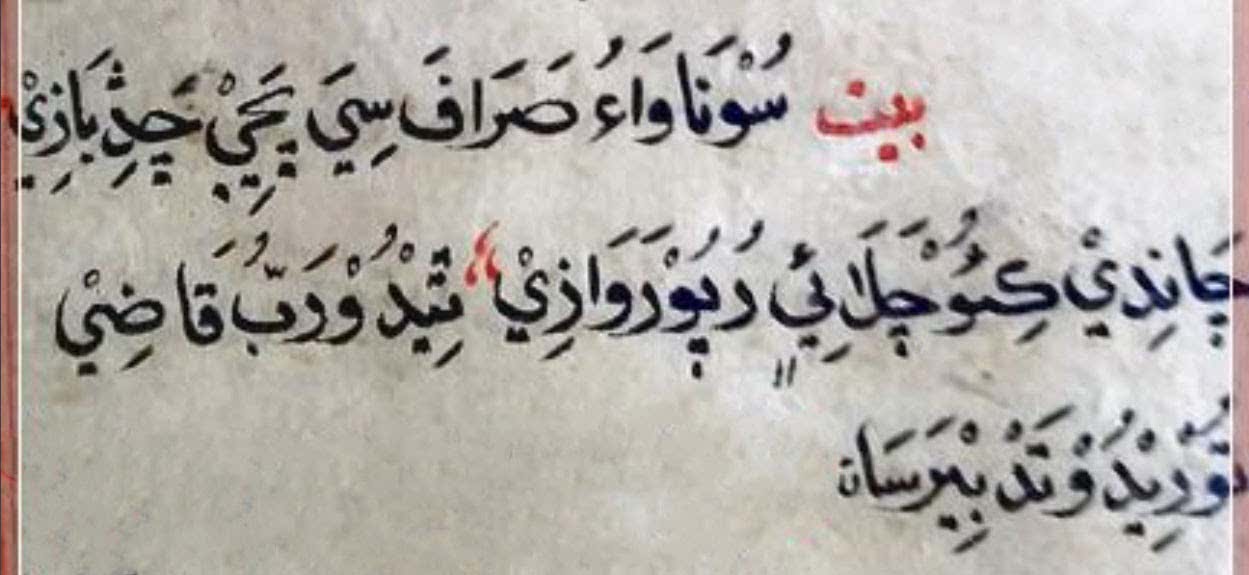 بيت سُوْنَاوَاءُ صَرَافَ سِيَ پَچِيْ چَڎِ بَازِيْ
چَانِدِيْ كِئُوْ چَلَائِيْ رُپُوْرَوَازِيْ تِيْدُوْ رَبُّ قَاضِيْ
تُوْرِيْدُوْ تَدْبِيْرَ سَان